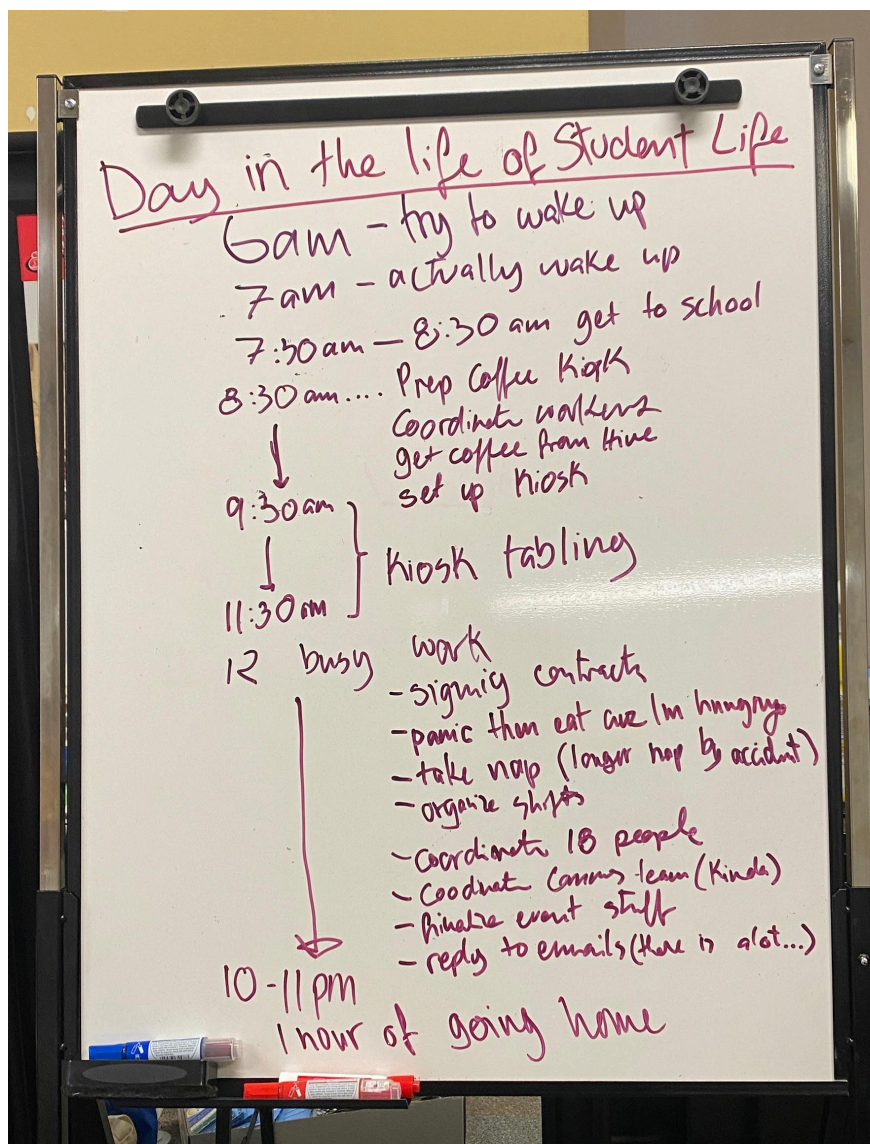 Day in the life of Student Life
6am - try to wake up
7am - actually wake up
7:30am - 8:30am get to school
8:30am.... Prep Coffee Kiosk
Coordinate workers
get coffee from Hive
set up Kiosk
9:30am
Kiosk tabling
11:30am
12 busy work
- signig contracts
- panic then eat cuz I'm hungry
- take nap (longer nap by accident)
- organize shifts
- coordinate 18 people
- coodinate Comms team (Kinda)
- finalize event stuff
- reply to emails (there is alot...)
10-11pm
1 hour of going home